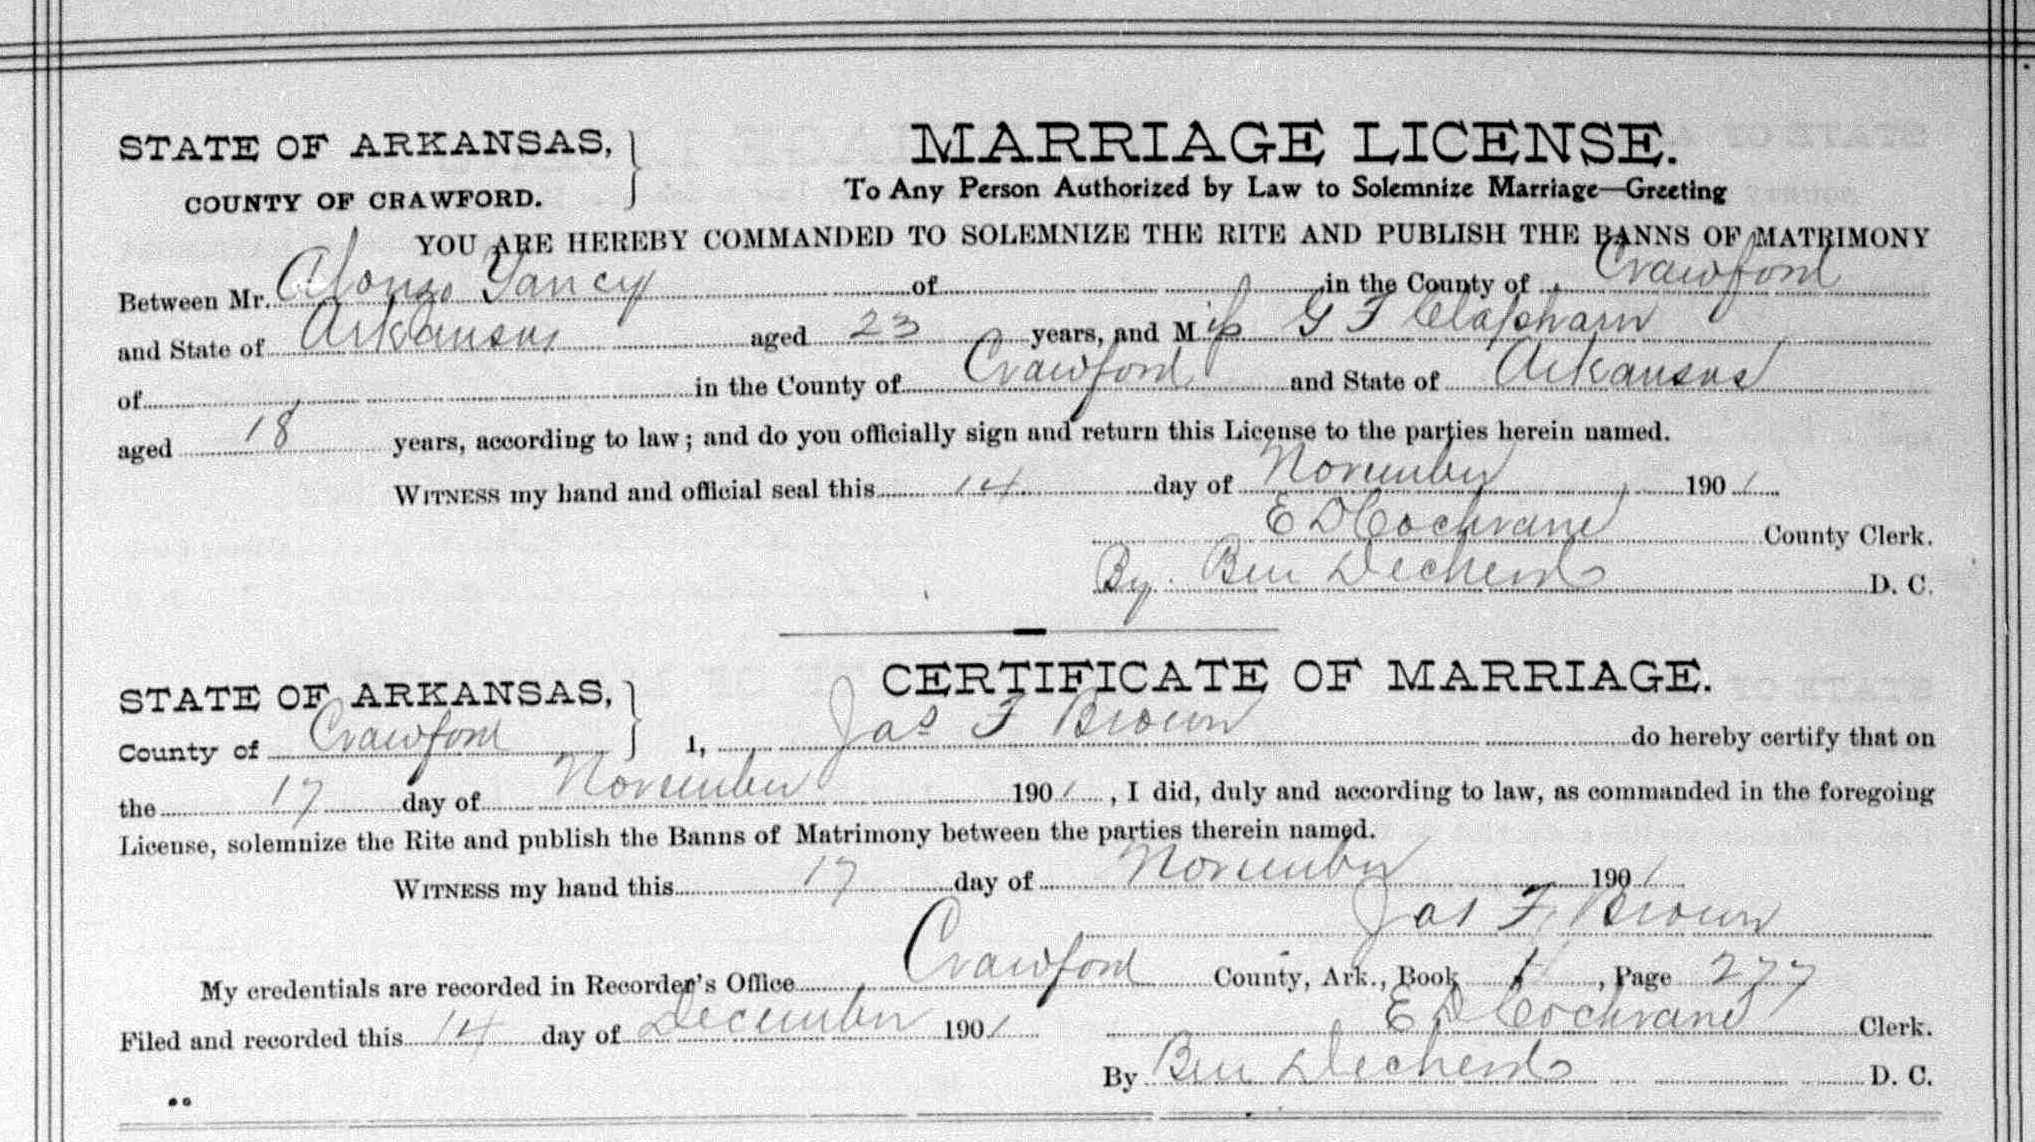 STATE OF ARKANSAS,
COUNTY OF CRAWFORD.
MARRIAGE LICENSE.
To Any Person Authorized by Law to Solemnize Marriage—Greeting
YOU ARE HEREBY COMMANDED TO SOLEMNIZE THE RITE AND PUBLISH THE BANNS OF MATRIMONY
Between Mr. Alonzo Yancy of in the County of Crawford
and State of Arkansas aged 23 years, and Miss G F Clapham
of in the County of Crawford and State of Arkansas
aged 18 years, according to law; and do you officially sign and return this License to the parties herein named.
WITNESS my hand and official seal this 14 day of November 1901
E D Cochrane County Clerk.
By Ben Decherd D. C.
CERTIFICATE OF MARRIAGE.
STATE OF ARKANSAS,
County of Crawford I, Jas F Brown do hereby certify that on
the 17 day of November 1901, I did, duly and according to law, as commanded in the foregoing
License, solemnize the Rite and publish the Banns of Matrimony between the parties therein named.
WITNESS my hand this 17 day of November 1901
Jas F. Brown
My credentials are recorded in Recorder's Office Crawford County, Ark., Book , Page 277
Filed and recorded this 14 day of December 1901 E D Cochrane Clerk.
By Ben Decherd D. C.